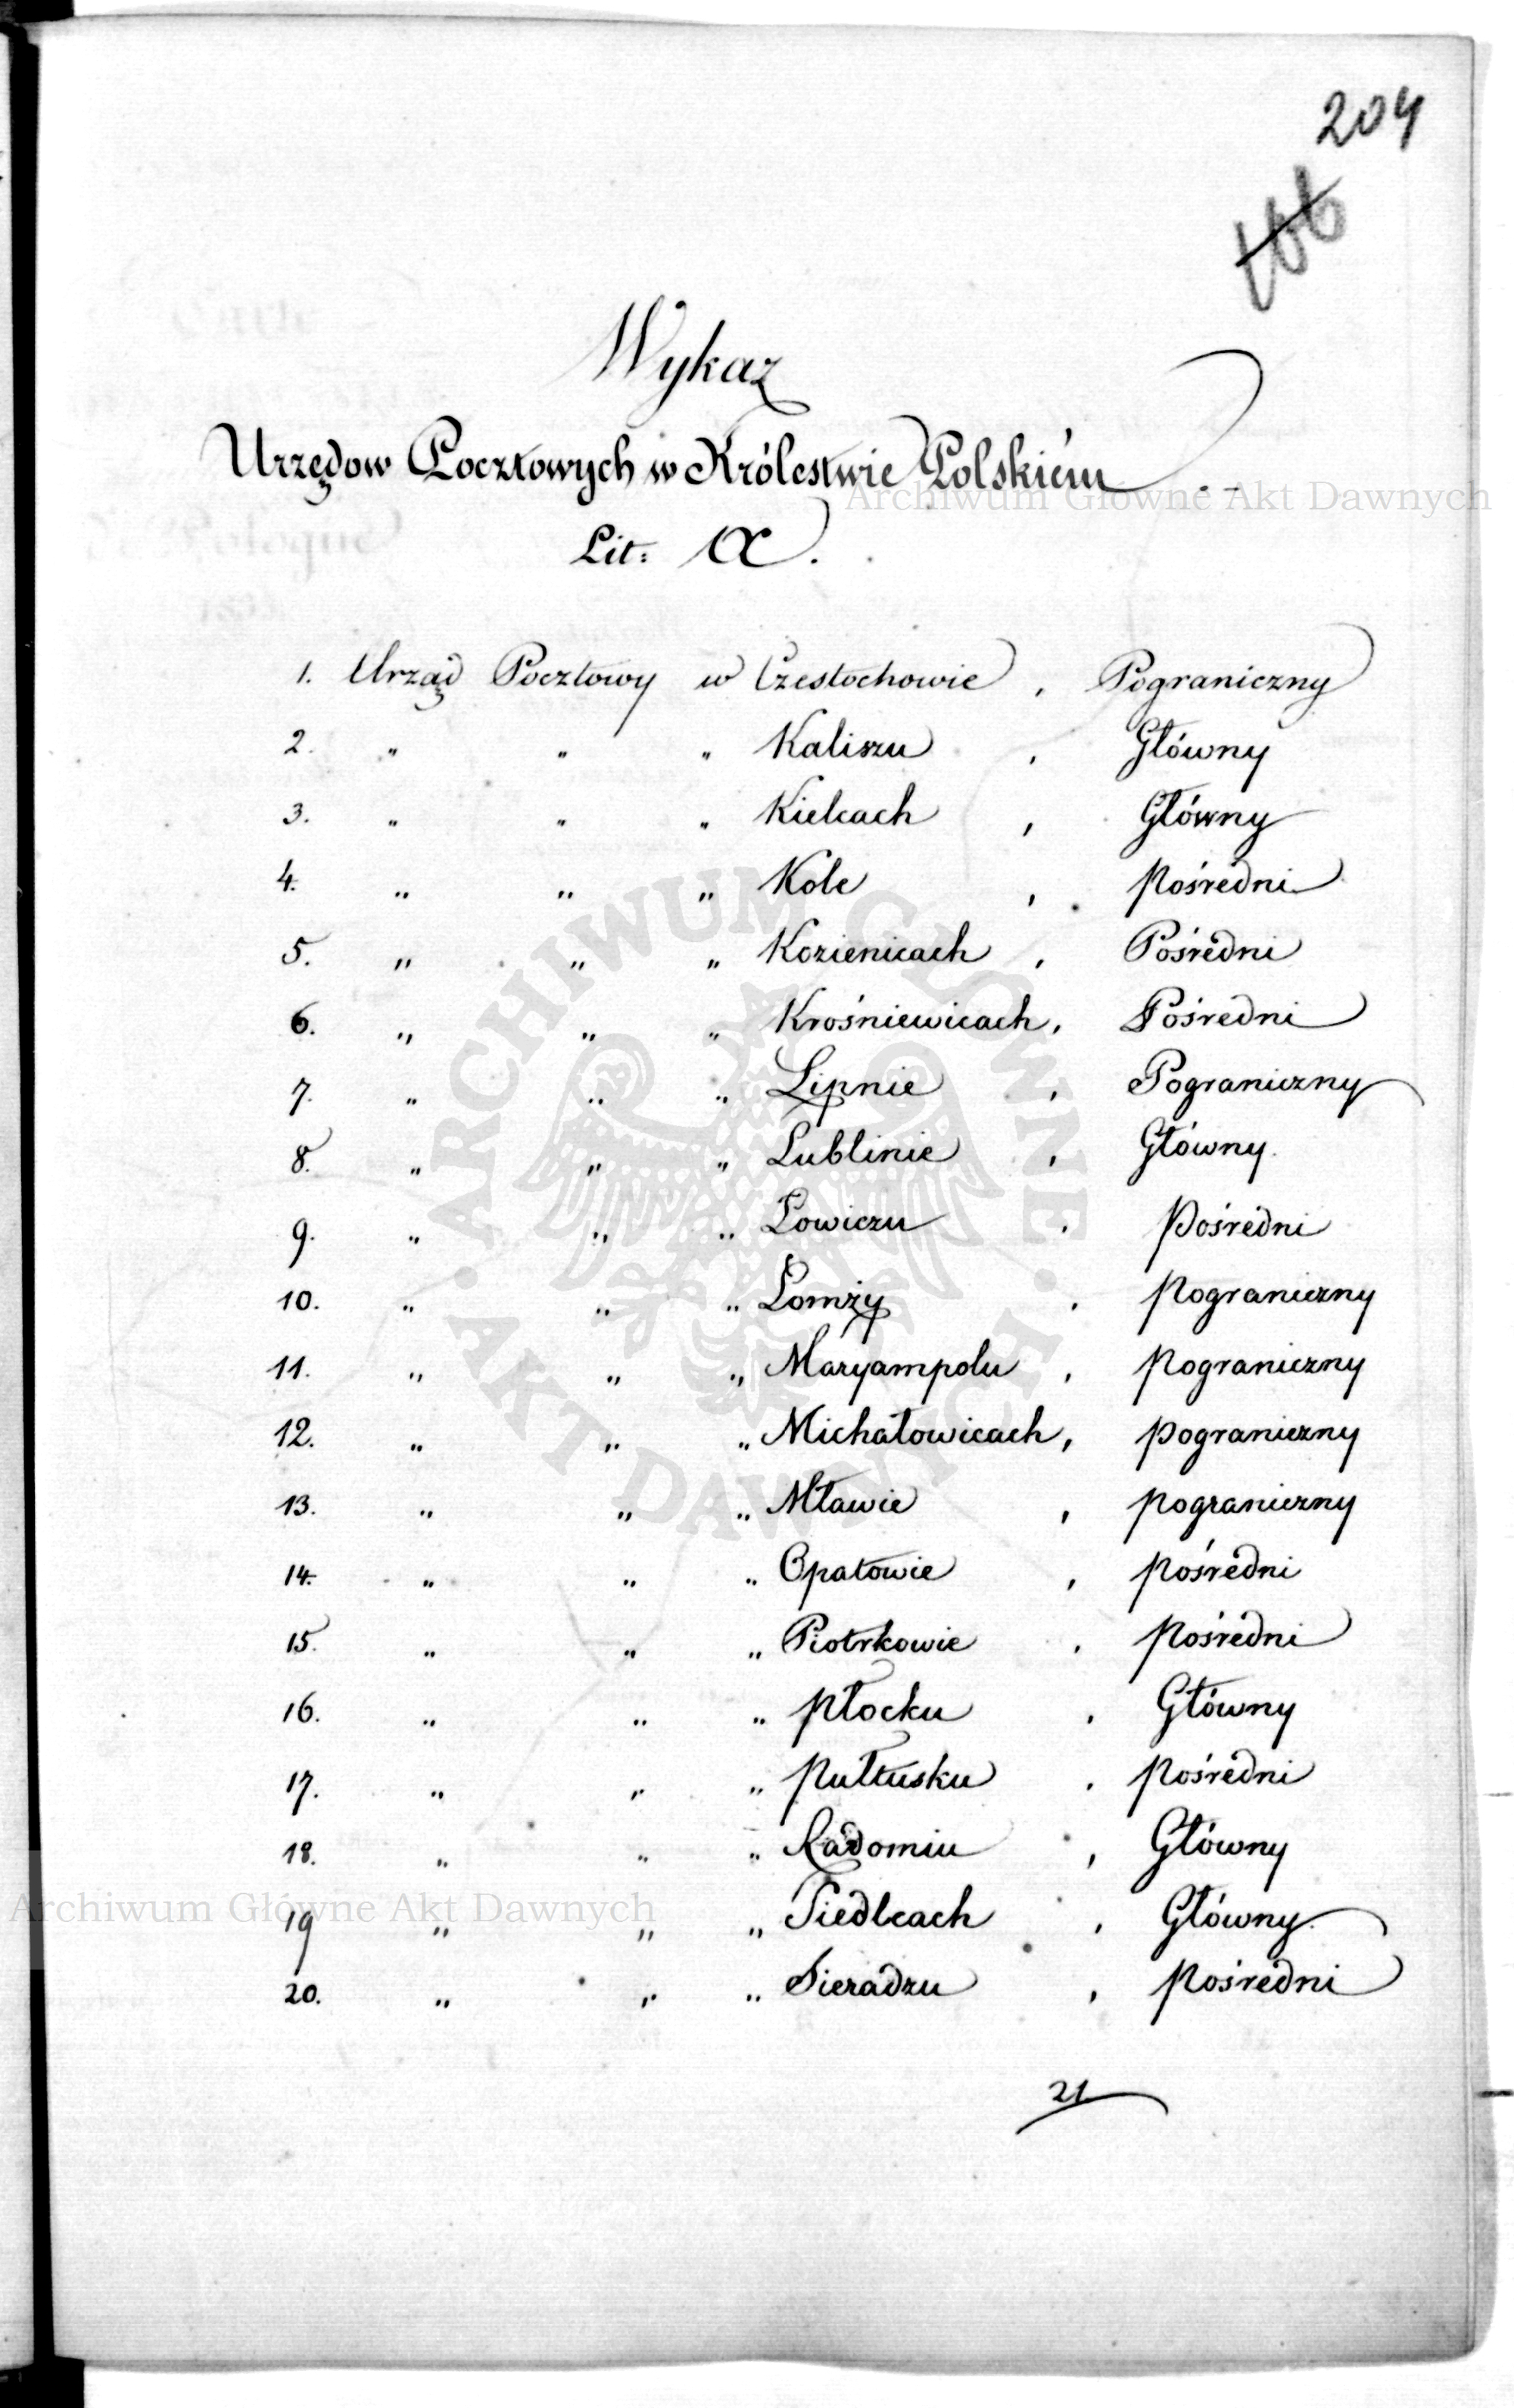 204
166
Wykaz
Urzędow Pocztowych w Królestwie Polskiém.
Archiwum Główne Akt Dawnych
Lit: A.
1. Urząd Pocztowy w Czestochowie, Pograniczny
2. " " " Kaliszu, Główny
3. " " " Kielcach, Główny
4. " " " Kole, Pośredni
5. " " " Kozienicach, Pośredni
6. " " " Krośniewicach, Pośredni
7. " " " Lipnie, Pograniczny
8. " " " Lublinie, Główny.
9. " " " Łowiczu, Pośredni
10. " " " Łomży, Pograniczny
11. " " " Maryampolu, Pograniczny
12. " " " Michałowicach, Pograniczny
13. " " " Mławie, Pograniczny
14. " " " Opatowie, Pośredni
15. " " " Piotrkowie, Pośredni
16. " " " Płocku, Główny
17. " " " Pułtusku, Pośredni
18. " " " Radomiu, Główny
19 " " " Siedlcach, Główny.
20. " " " Sieradzu, Pośredni
21
ARCHIWUM GŁÓWNE AKT DAWNYCH
Archiwum Główne Akt Dawnych